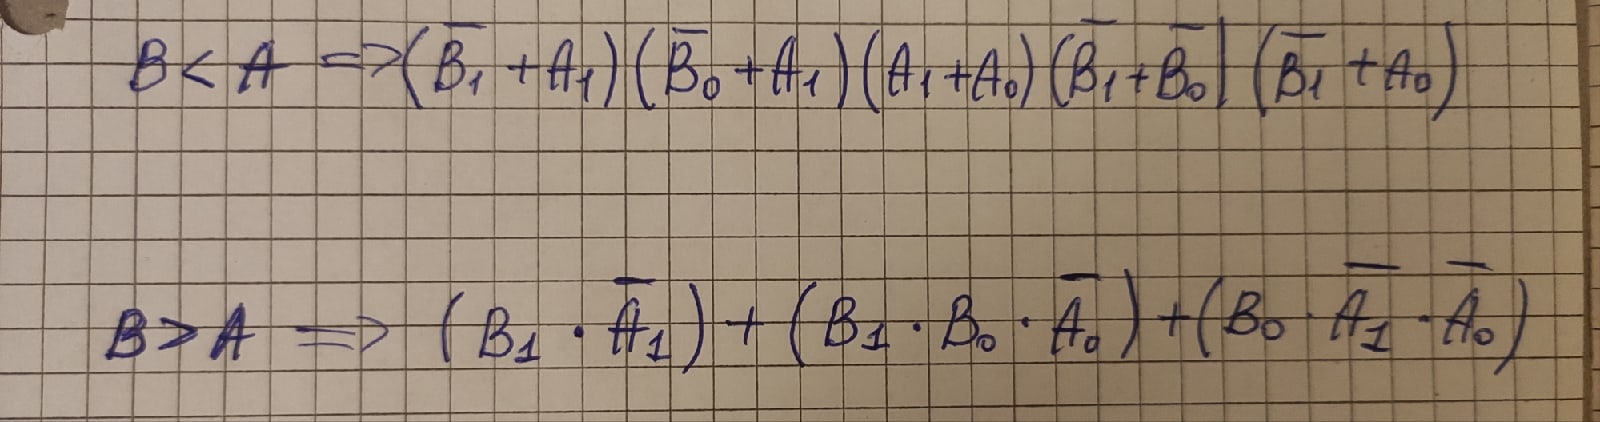 B < A => (B̅₁ + A₁) (B̅₀ + A₁) (A₁ + A₀) (B̅₁ + B̅₀) (B̅₁ + A₀)
B > A => (B₁ · A̅₁) + (B₁ · B₀ · A̅₀) + (B₀ · A̅₁ · A̅₀)